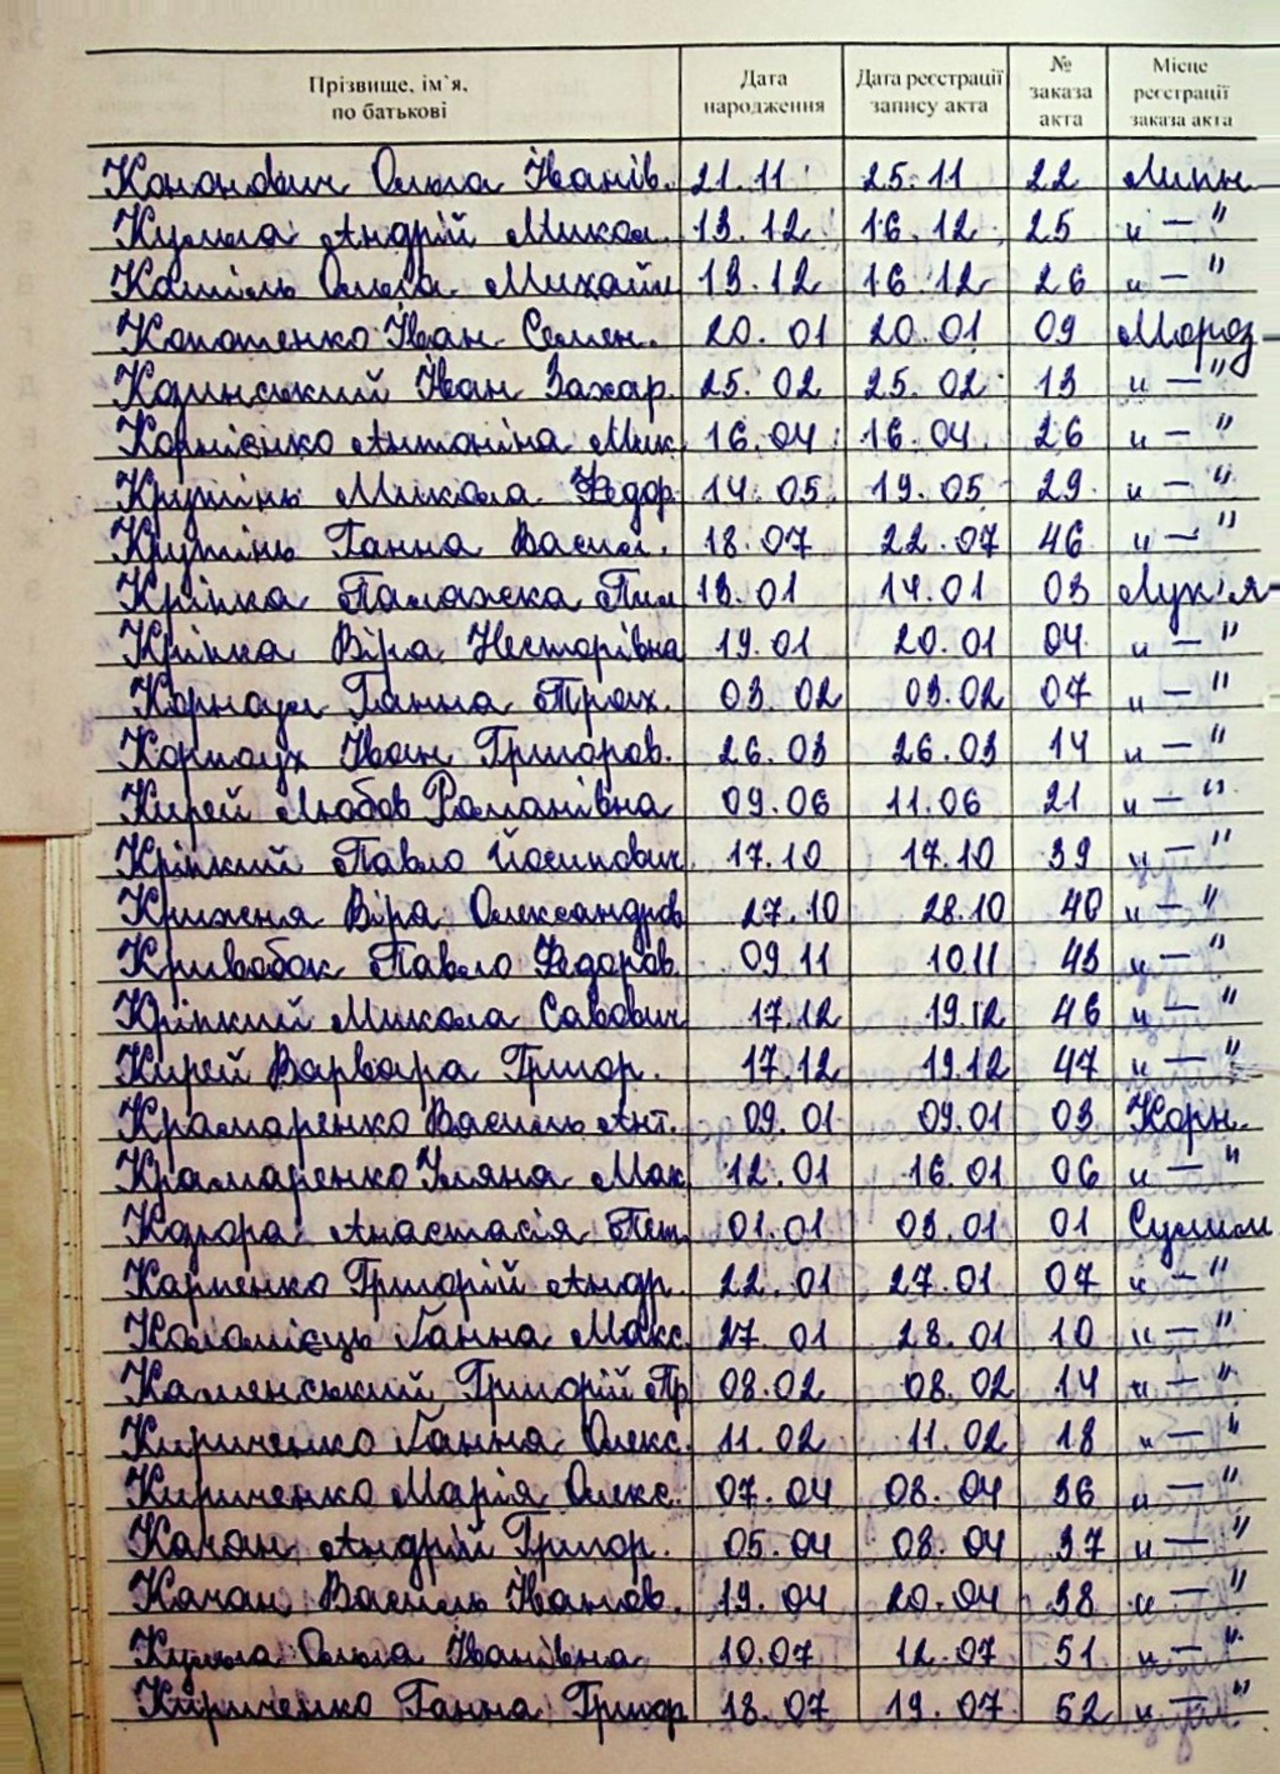 Прізвище, ім`я, по батькові Дата народження Дата реєстрації запису акта № заказа акта Місце реєстрації заказа акта
Конанович Ольга Іванів. 21.11 25.11 22 Липн
Кульга Андрій Микол. 13.12 16.12 25 " — "
Ольга Михайл 13.12 16.12 26 " — "
Копотенко Іван Семен. 20.01 20.01 09 Мороз
Козинський Іван Захар. 25.02 25.02 13 " — "
Корнієнко Антоніна Мик. 16.04 16.04 26 " — "
Крутінь Микола Федор. 14.05 19.05 29 " — "
Крутінь Ганна Васил. 18.07 22.07 46 " — "
Кріпка Палажека Пил 13.01 14.01 03 Лук'я
Кріпка Віра Несторівна 19.01 20.01 04 " — "
Ганна Трох. 03.02 03.02 07 " — "
Корнаух Іван Григоров. 26.03 26.03 14 " — "
Кирей Любов Романівна 09.06 11.06 21 " — "
Кріпкий Павло Йосипович 17.10 17.10 39 " — "
Крижня Віра Олександров 27.10 28.10 40 " — "
Кривобок Павло Федоров. 09.11 10.11 43 " — "
Кріпкий Микола Савович 17.12 19.12 46 " — "
Кирей Варвара Григор. 17.12 19.12 47 " — "
Крамаренко Василь Ант. 09.01 09.01 03 Корн.
Крамаренко Уляна Мак 12.01 16.01 06 " — "
Козюра Анастасія Пет. 01.01 03.01 01 Сулим
Карпенко Григорій Андр. 22.01 27.01 07 " — "
Коломієць Ганна Макс. 27.01 28.01 10 " — "
Каменський Григорій Пр 08.02 08.02 14 " — "
Кириченко Ганна Олекс. 11.02 11.02 18 " — "
Кириченко Марія Олекс. 07.04 08.04 36 " — "
Качан Андрій Григор. 05.04 08.04 37 " — "
Качан Василь Іванов. 19.04 20.04 38 " — "
Кульга Ольга Іванівна 10.07 12.07 51 " — "
Кириченко Ганна Григор 18.07 19.07 52 " — "